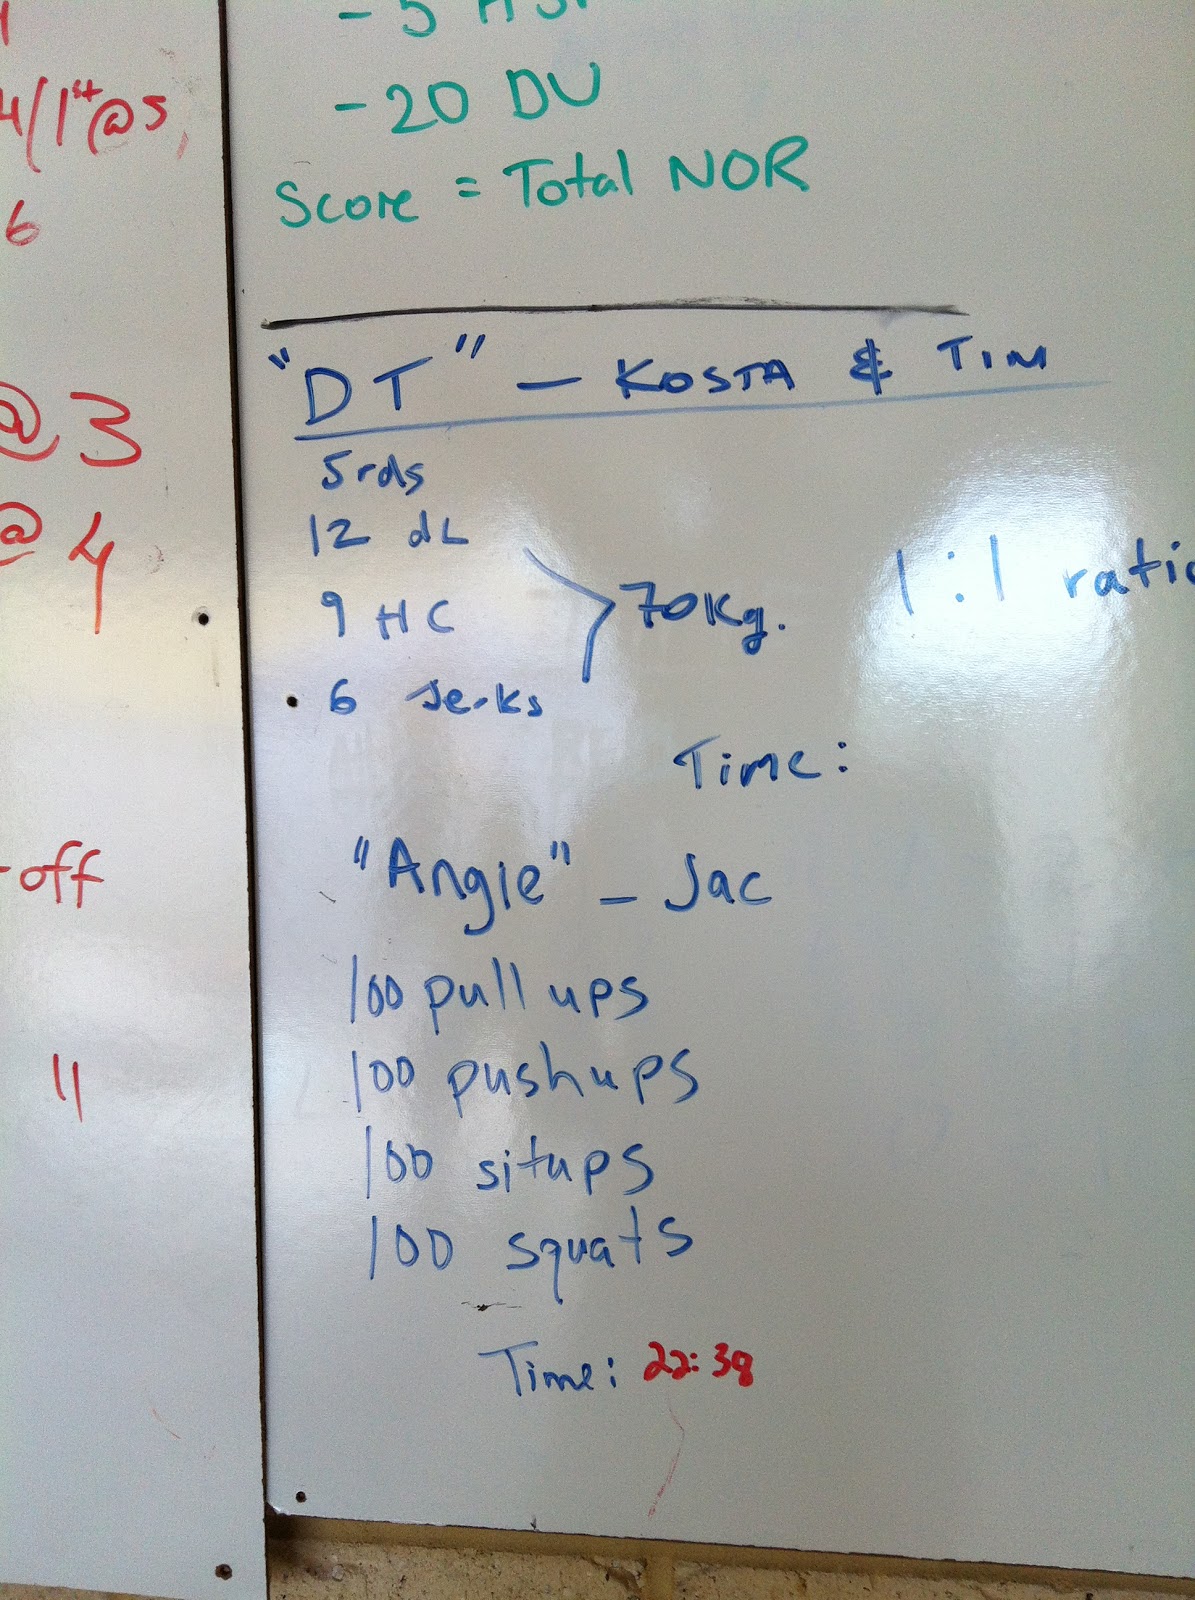 4/1st @ 5,
6
@ 3
@ 4
-off
11
-20 DU
Score = Total NOR
"DT" – KOSTA & TIM
5rds
12 dL
9 HC
70kg.
1:1 ratio
6 Jerks
Time:
"Angie" – Jac
100 pull ups
100 pushups
100 situps
100 squats
Time: 22:38